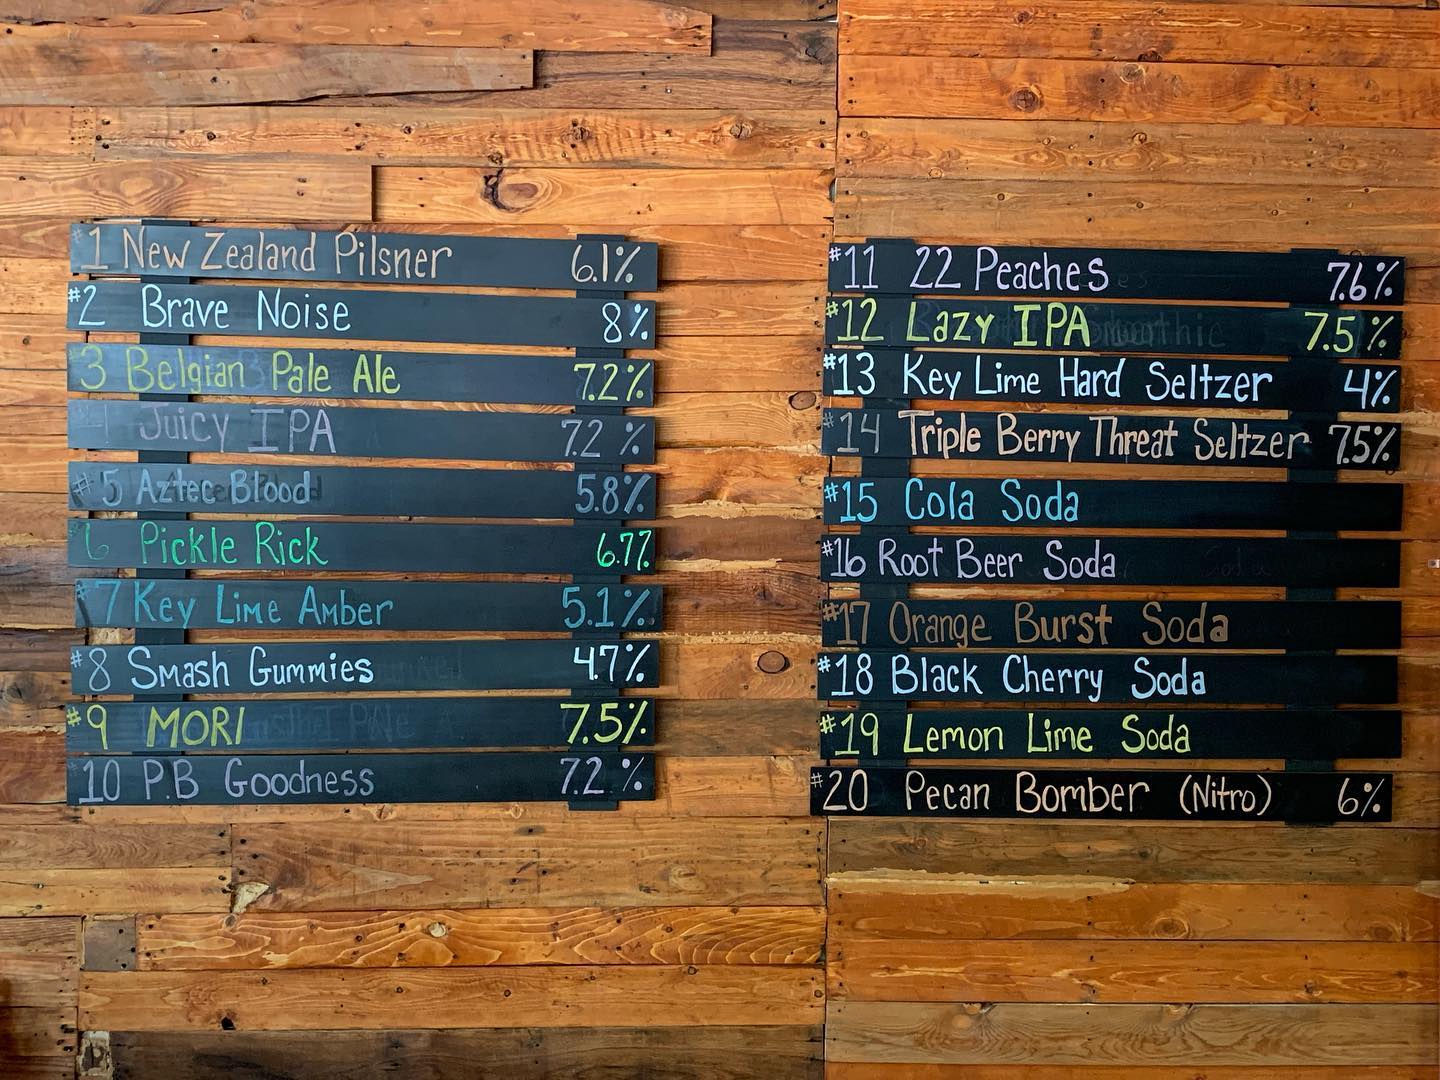 #1 New Zealand Pilsner 6.1%
#2 Brave Noise 8%
3 Belgian Pale Ale 7.2%
#4 Juicy IPA 7.2 %
#5 Aztec Blood 5.8%
6 Pickle Rick 6.7%
#7 Key Lime Amber 5.1%
#8 Smash Gummies 4.7%
#9 MORI 7.5%
#10 P.B Goodness 7.2 %
#11 22 Peaches 7.6%
#12 Lazy IPA 7.5%
#13 Key Lime Hard Seltzer 4%
#14 Triple Berry Threat Seltzer 7.5%
#15 Cola Soda
#16 Root Beer Soda
#17 Orange Burst Soda
#18 Black Cherry Soda
#19 Lemon Lime Soda
#20 Pecan Bomber (Nitro) 6%